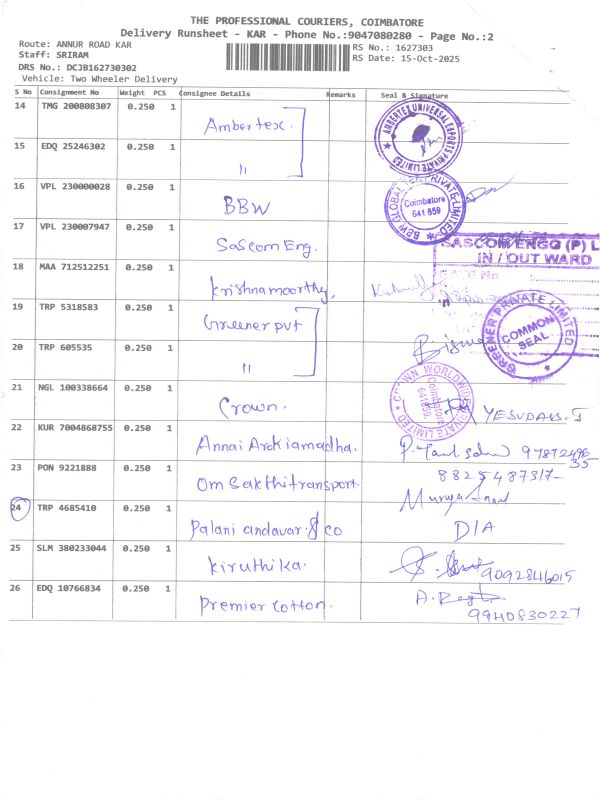 THE PROFESSIONAL COURIERS, COIMBATORE
Delivery Runsheet - KAR - Phone No.:9047080280 - Page No.:2
Route: ANNUR ROAD KAR
RS No.: 1627303
Staff: SRIRAM
RS Date: 15-Oct-2025
DRS No.: DCJB162730302
Vehicle: Two Wheeler Delivery
S No Consignment No Weight PCS Consignee Details Remarks Seal & Signature
14 TMG 200808307 0.250 1 Ambertex. AMBERTEX UNIVERSAL EXPORTS PRIVATE LIMITED
15 EDQ 25246302 0.250 1 "
16 VPL 230000028 0.250 1 BBW BBW GLOBAL PRIVATE LIMITED Coimbatore 641 659
17 VPL 230007947 0.250 1 Sascom Eng. SASCOM ENGG (P) L
IN / OUT WARD
18 MAA 712512251 0.250 1 Krishnamoorthy.
19 TRP 5318583 0.250 1 Greener pvt GREENER PRIVATE LIMITED COMMON SEAL
20 TRP 605535 0.250 1 "
21 NGL 100338664 0.250 1 Crown. CROWN WORLDWIDE PRIVATE LIMITED Coimbatore YESUDAS. J
22 KUR 7004868755 0.250 1 Annai Arokiamadha.
23 PON 9221888 0.250 1 Om Sakthi transport.
24 TRP 4685410 0.250 1 Palani andavar & co DIA
25 SLM 380233044 0.250 1 Kiruthika. 9092846015
26 EDQ 10766834 0.250 1 Premier Cotton. 9940830227